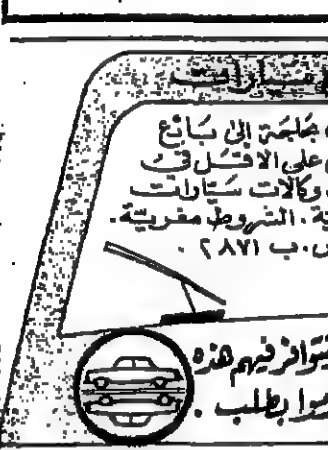 سيارات
حاجة إلى بائع
على الاقل في
وكالات سيارات
ية. الشروط مغرية.
ص.ب ٢٨٧١ .
تتوافر فيهم هذه
موا بطلب .